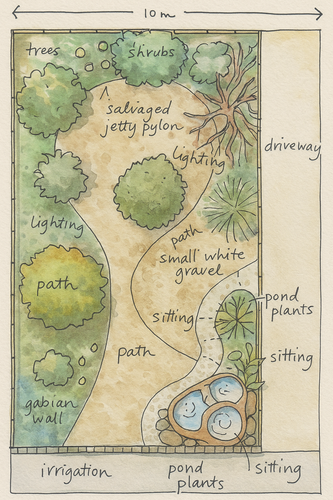 10 m
trees
shrubs
salvaged
jetty pylon
driveway
lighting
lighting
path
small white
gravel
path
pond
plants
sitting
path
sitting
gabian
wall
irrigation
pond
plants
sitting